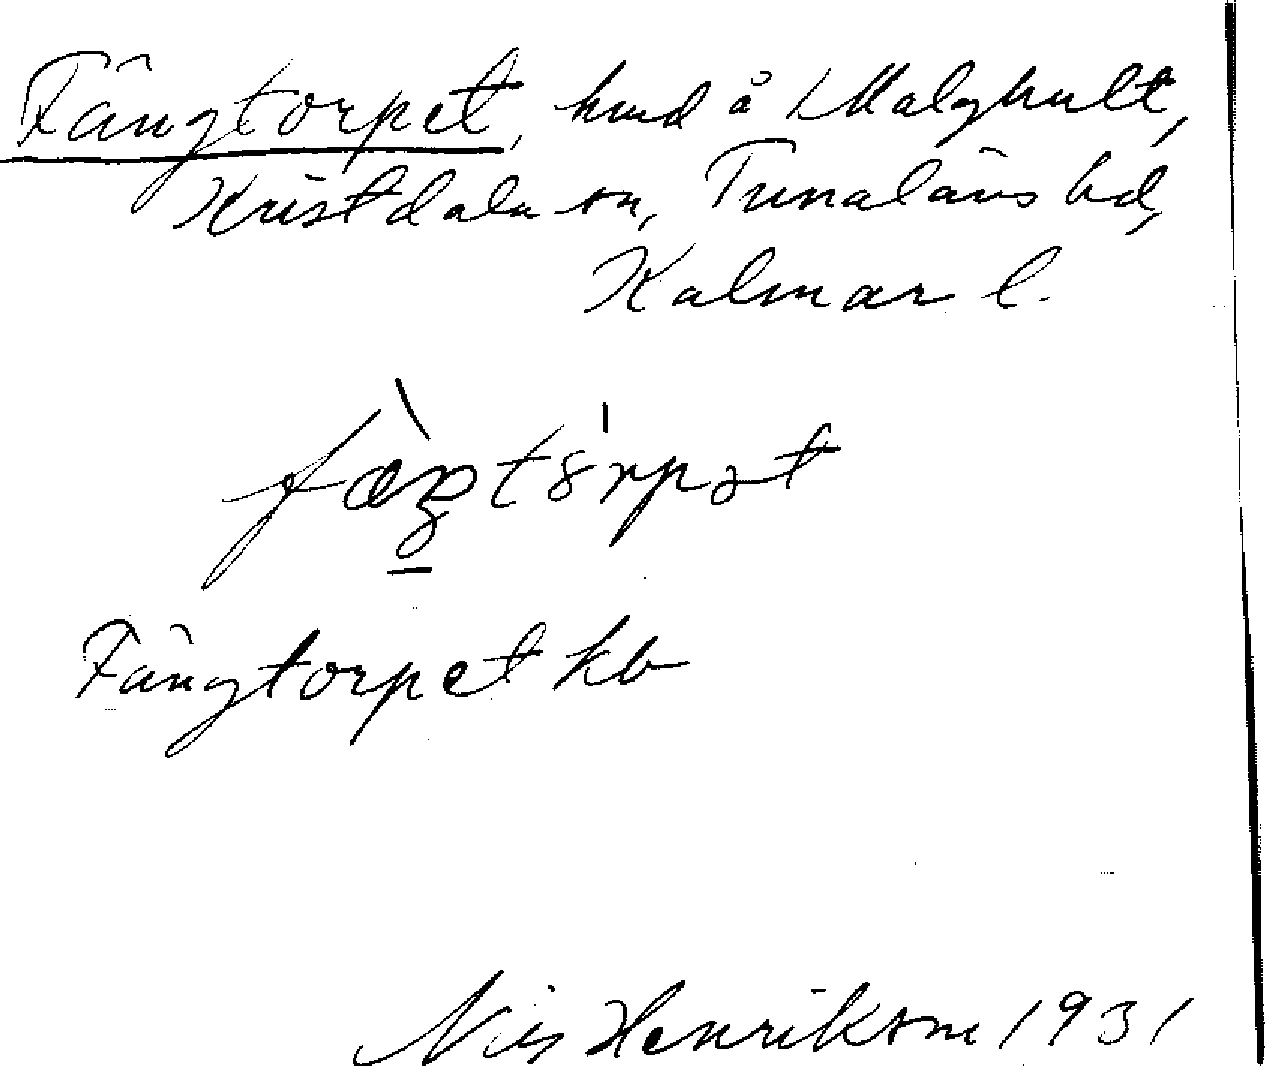 Fängtorpet, hmd å Malghult,
Kristdala sn, Tunaläns hd,
Kalmar l.
Fängtorpet kb
Nils Henrikson 1931